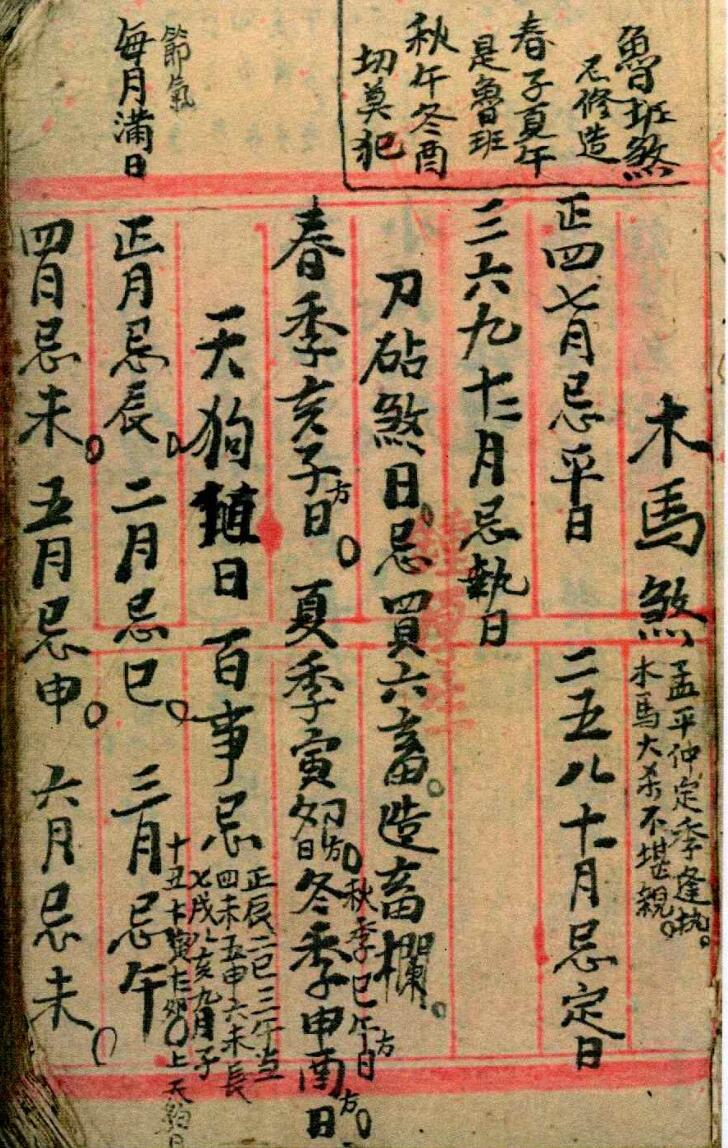 魯班煞
不修造
春子夏午
是魯班
秋午冬酉
切莫犯
節氣
每月滿日
木馬煞
孟平仲定季逢执。
木馬大杀不堪親。
正四七月忌平日
二五八十一月忌定日
三六九十二月忌執日
刀砧煞日。忌買六畜。造畜欄。
春季亥子日方。夏季寅卯日方。
秋季巳午日方。
冬季申酉日方。
天狗日百事忌
正辰二巳三午当
四未五申六未長
七戌八亥九月子
十丑十寅十卯。上天狗日
正月忌辰。二月忌巳。三月忌午
四月忌未。五月忌申。六月忌未。